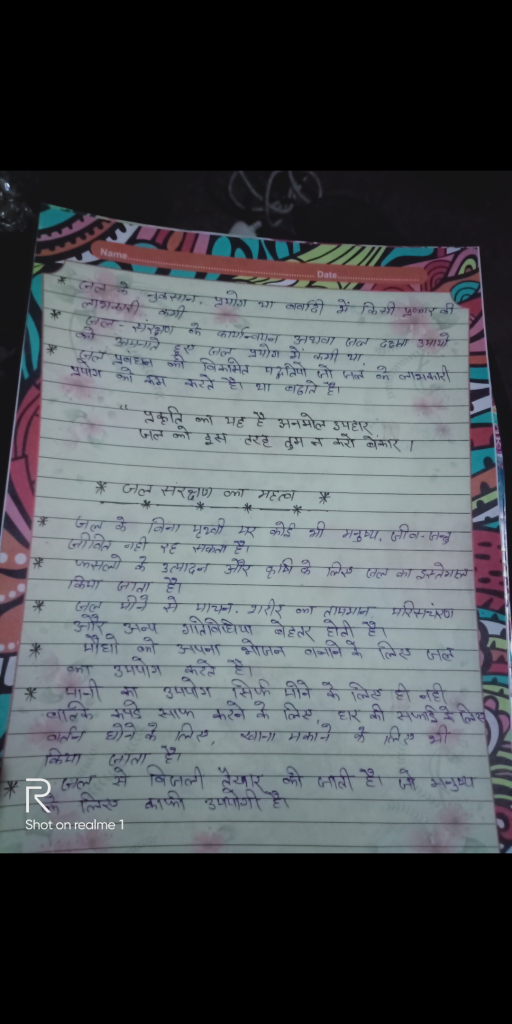 Name.......................... Date..................
* जल के नुकसान, प्रयोग या बर्बादी में किसी प्रकार की
लाभकारी कमी
* जल-संरक्षण के कार्यान्वयन अथवा जल दक्षता उपायों
को अपनाते हुए जल प्रयोग में कमी या
* जल प्रबंधन की विकसित पद्धतियाँ जो जल के लाभकारी
प्रयोग को कम करते है। या बढ़ाते है।
" प्रकृति का यह है अनमोल उपहार
जल को इस तरह तुम न करो बेकार।
* जल संरक्षण का महत्व *
* जल के बिना पृथ्वी पर कोई भी मनुष्य, जीव-जन्तु
जीवित नही रह सकता है।
* फसलो के उत्पादन और कृषि के लिए जल का इस्तेमाल
किया जाता है।
* जल पीने से पाचन, शरीर का तापमान, परिसंचरण
और अन्य गतिविधिया बेहतर होती है।
* पौधो को अपना भोजन बनाने के लिए जल
का उपयोग करते है।
* पानी का उपयोग सिर्फ पीने के लिए ही नही
बल्कि कपड़े साफ करने के लिए, घर की सफाई के लिए
बर्तन धोने के लिए, खाना पकाने के लिए भी
किया जाता है।
* जल से बिजली तैयार की जाती है। जो मनुष्य
के लिए काफी उपयोगी है।
R
Shot on realme 1